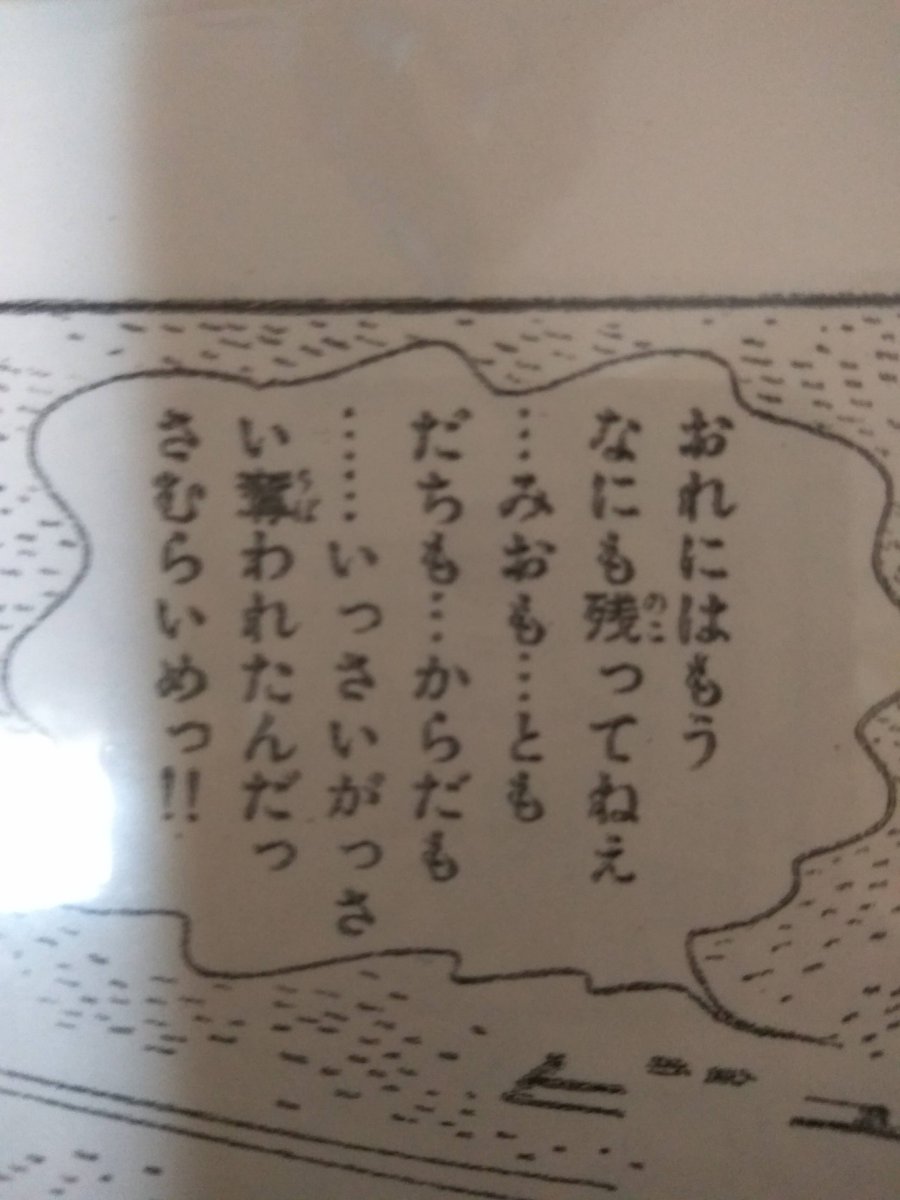 おれにはもう
なにも残ってねえ
…みおも…とも
だちも…からだも
……いっさいがっさ
い奪われたんだっ
さむらいめっ!!